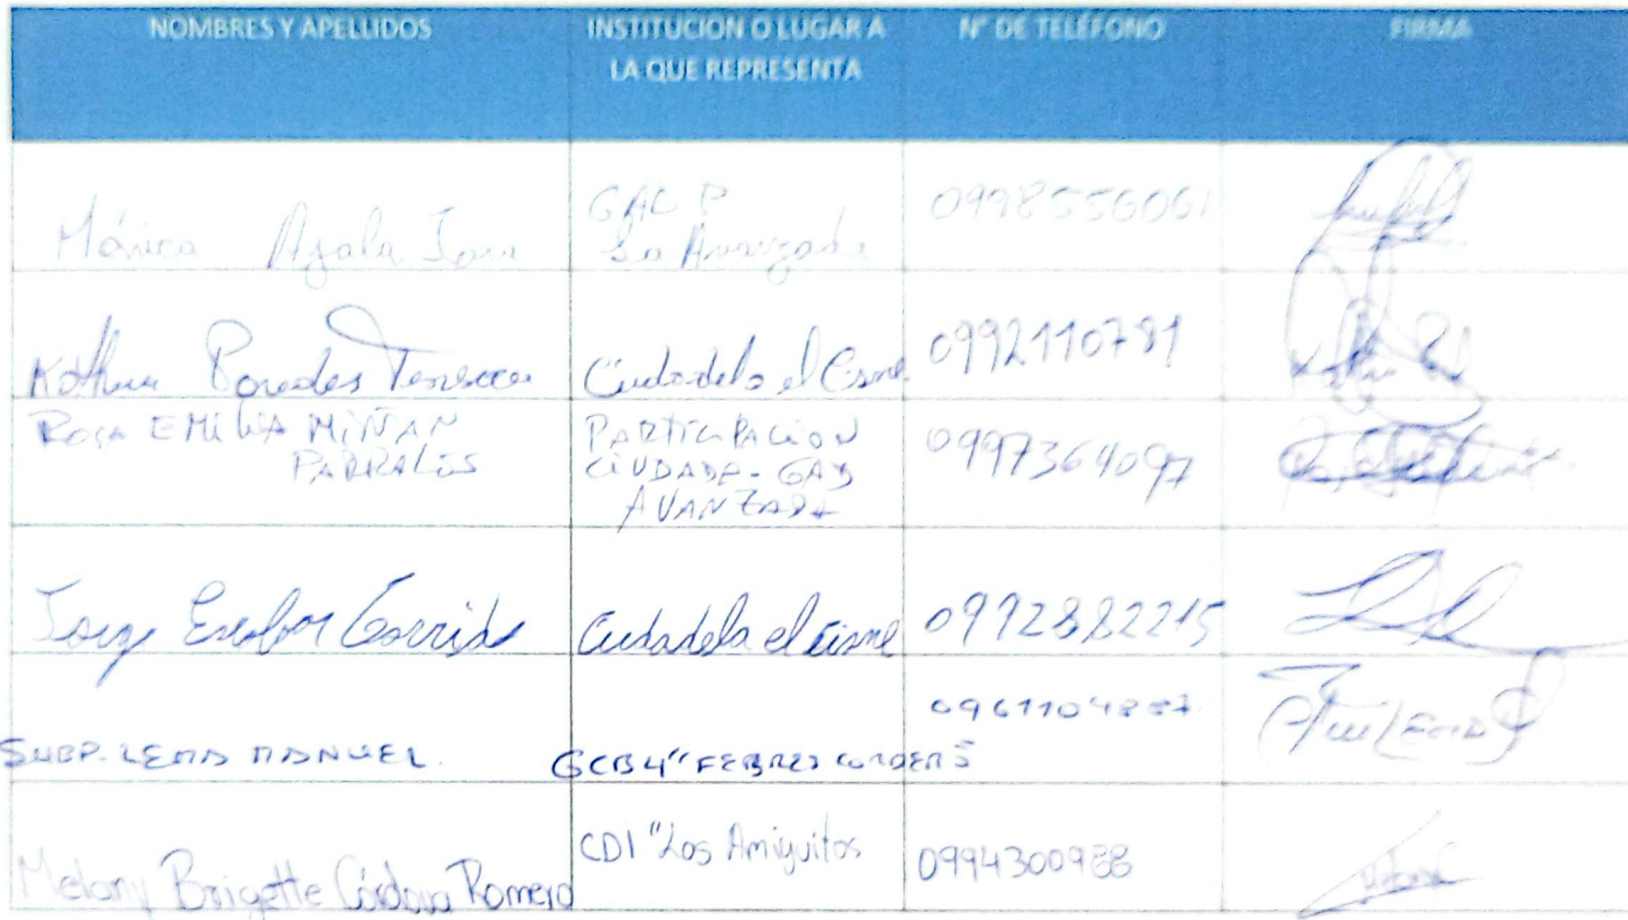 NOMBRES Y APELLIDOS
INSTITUCION O LUGAR A
LA QUE REPRESENTA
N° DE TELÉFONO
FIRMA
Mónica Ayala
La Avanzada
0998556061
Paredes
Ciudadela el Cisne
0992110781
ROSA EMILIA MIÑAN
PARRALES
PARTICIPACION
CIUDADA - GAD
AVANZADA
0997364097
Jorge Escobar Garrido
Ciudadela el Cisne
0992882215
SUBP. LEMA MANUEL.
GCB4 "FEBRES CORDERO
0961104887
LEMA
Melany Brigette Córdova Romero
CDI "Los Amiguitos
0994300988